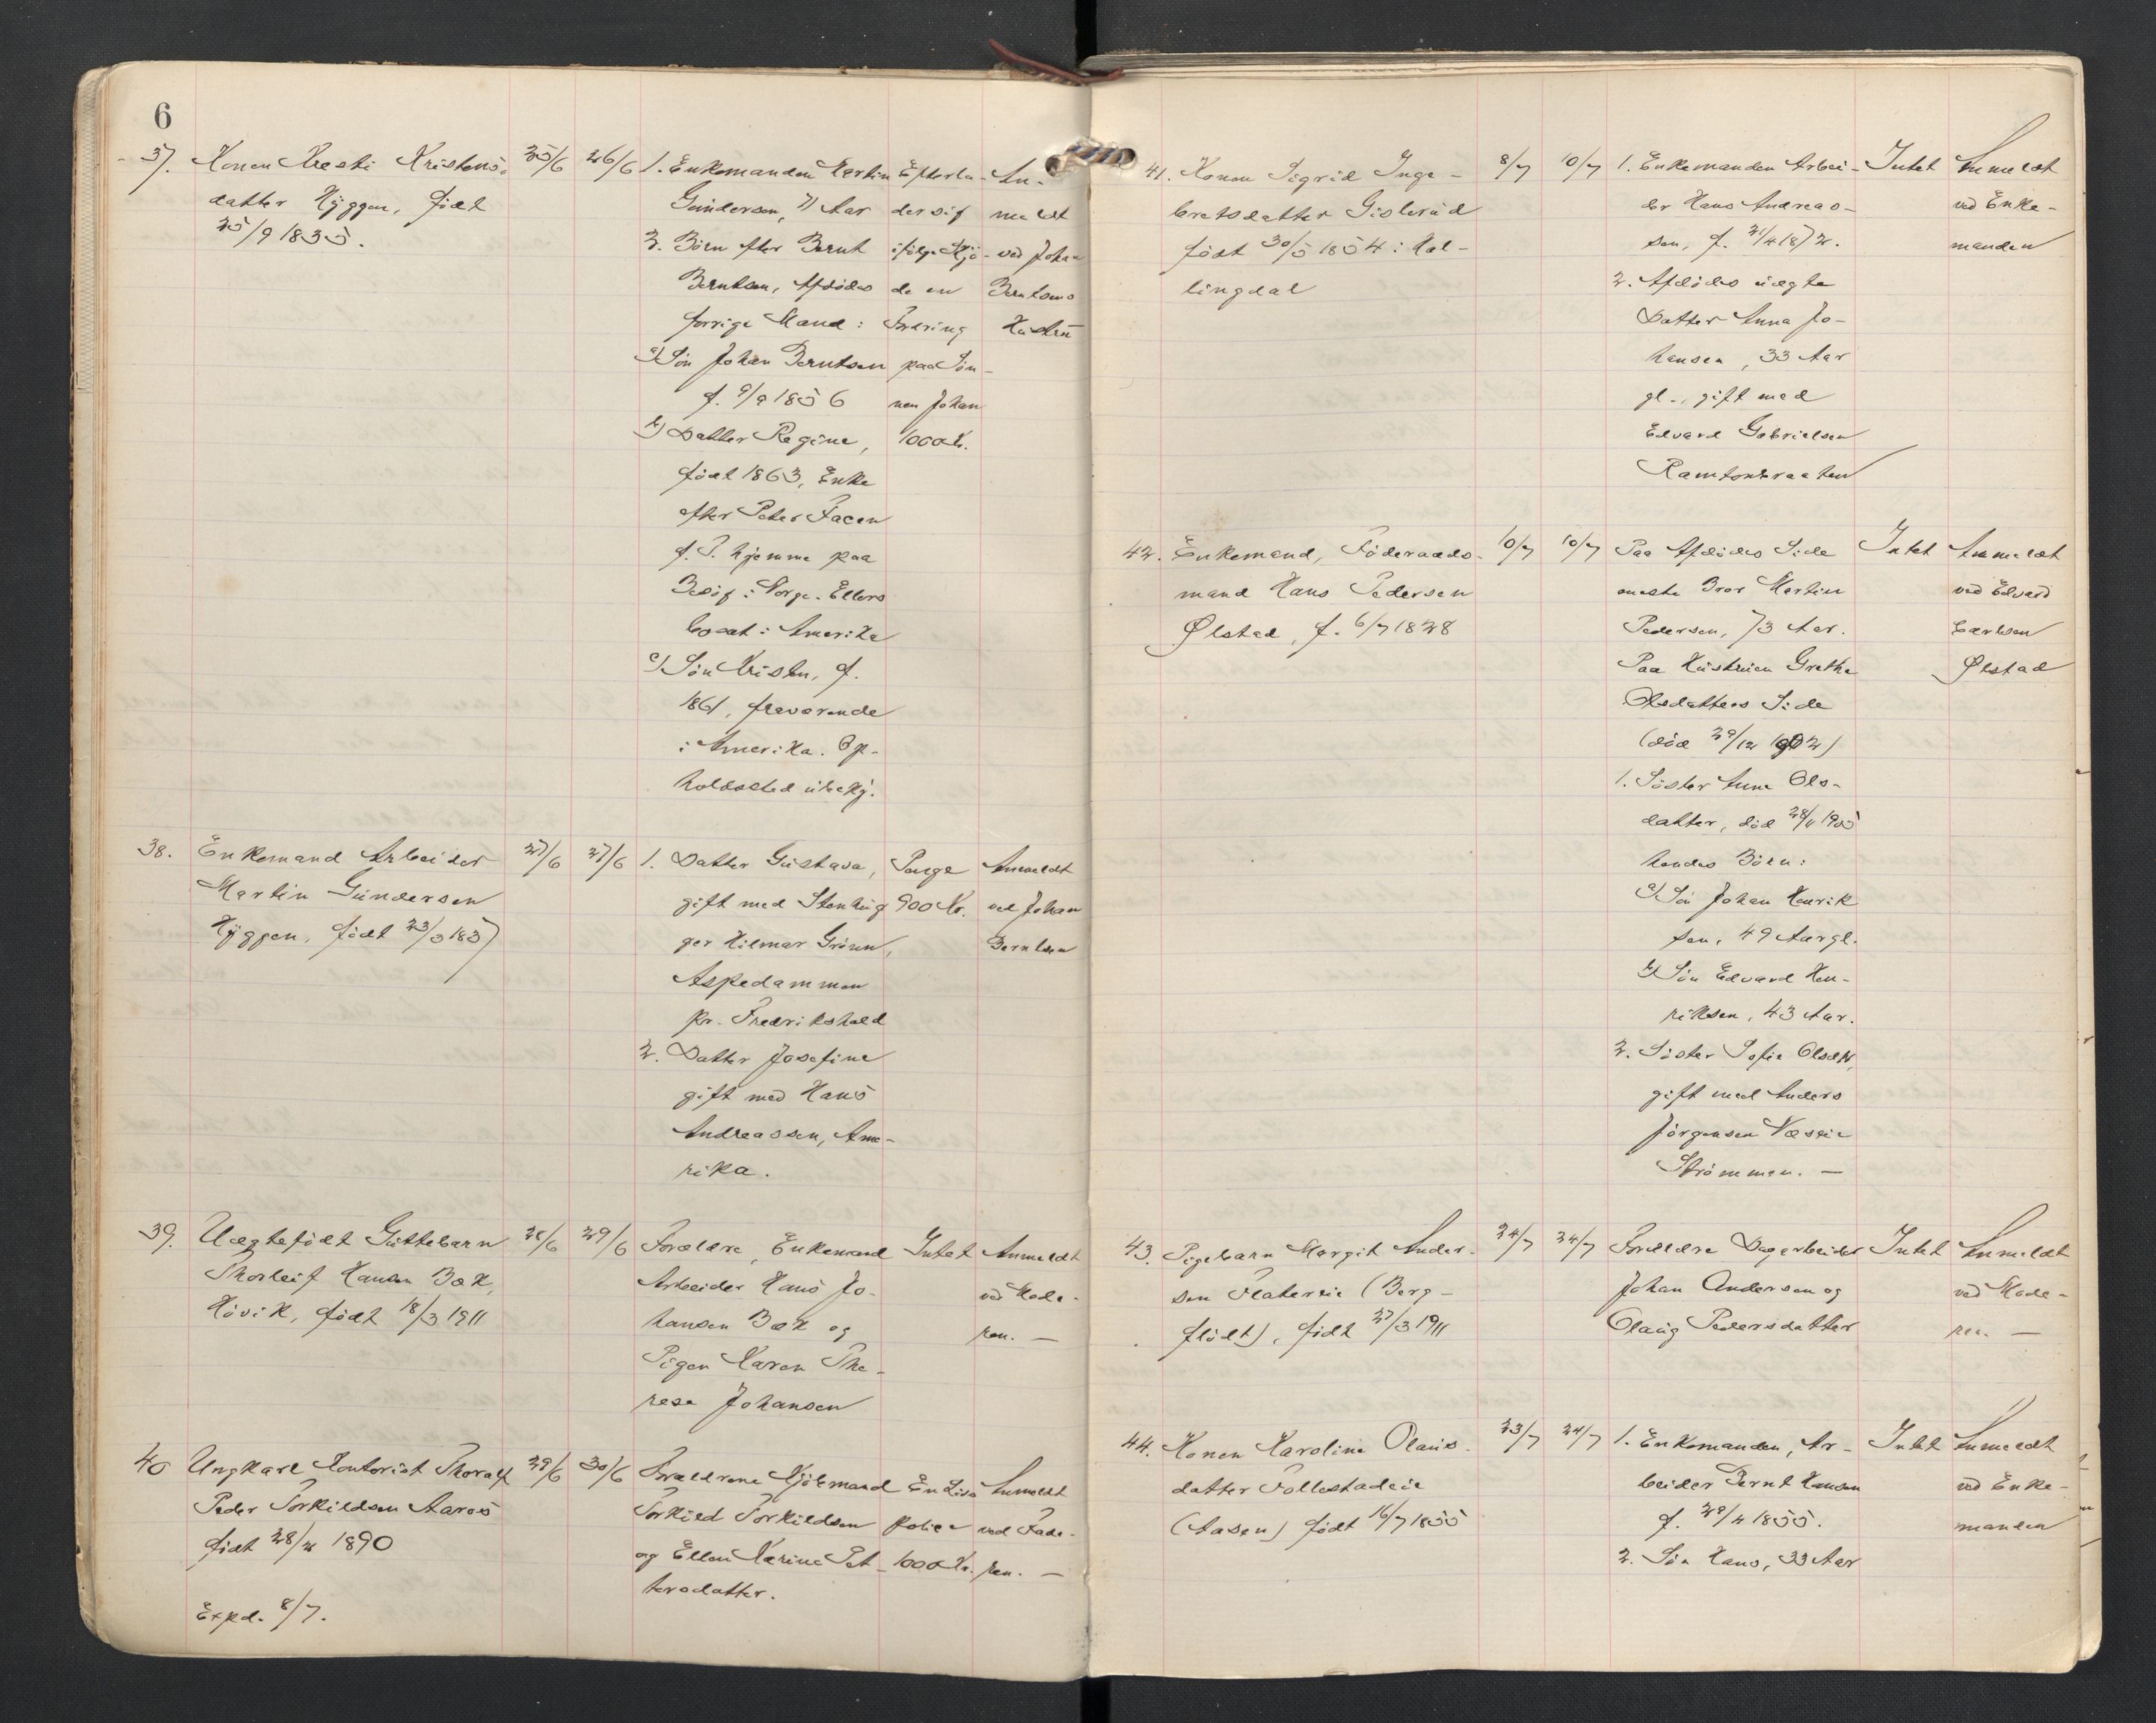 6
37. Konen Kresti Kristens-
datter Hyggen, født
25/9 1835.
25/6 26/6
1. Enkemanden Martin
Gundersen, 71 Aar
2. Børn efter Bernt
Berntsen, Afdødes
forrige Mand:
a) Søn Johan Berntsen
f. 9/9 1856
b) Datter Regine,
født 1863, Enke
efter Peter
f. T. hjemme paa
Besøg i Norge. Ellers
bosat i Amerika
c) Søn Kristen, f.
1861, fraværende
i Amerika. Op-
holdssted ubekj.
Efterla-
der sig
ifølge Skjö-
de en
Fordring
paa Søn-
nen Johan
1000 Kr.
An-
meldt
ved Johan
Berntsens
Hustru
38. Enkemand Arbeider
Martin Gundersen
Hyggen, født 23/3 1837
27/6 27/6
1. Datter Gustava,
gift med Stenhug
ger Hilmar Grönn,
Aspedammen
pr. Fredrikshald
2. Datter Josefine
gift med Hans
Andreassen, Ame-
rika.
Penge
900 Kr.
Anmeldt
ved Johan
Berntsen
39. Uegtefødt Guttebarn
Thorleif Hansen Bæk,
Høvik, født 18/3 1911
28/6 29/6
Forældre, Enkemand
Arbeider Hans Jo-
hansen Bæk og
Pigen Karen The-
rese Johansen
Intet
Anmeldt
ved Mode-
ren. —
40 Ungkarl Kontorist Thoralf
Peder Torkildsen Aaros
født 28/2 1890
Expd. 8/7.
29/6 30/6
Forældrene Kjøbmand
Torkild Torkildsen
og Ellen Karine Pet-
tersdatter.
En Livs
police
1000 Kr.
Anmeldt
ved Fade-
ren. —
41. Konen Sigrid Inge-
bretsdatter Gislerud
født 30/5 1854 i Hal-
lingdal
8/7 10/7
1. Enkemanden Arbei-
der Hans Andreas-
sen, f. 21/4 1872.
2. Afdødes uægte
Datter Anna Jo-
hansen, 33 Aar
gl., gift med
Edvard Gabrielsen
Ramtonbraaten
Intet
Anmeldt
ved Enke-
manden
42. Enkemand, Föderaads-
mand Hans Pedersen
Ølstad, f. 6/7 1828
10/7 10/7
Paa Afdødes Side
eneste Bror Martin
Pedersen, 73 Aar.
Paa Hustruen Grethe
Olsdatters Side
(død 29/12 1902)
1. Søster Anne Ols-
datter, død 28/11 1905
hendes Börn:
a) Søn Johan Henrik
sen, 49 Aar gl.
b) Søn Edvard Hen-
riksen, 43 Aar.
2. Søster Sofie Olsdtr,
gift med Anders
Jörgensen Næseie
Strömmen. —
Intet
Anmeldt
ved Edvard
Carlsen
Ølstad
43. Pigebarn Margit Ander-
sen Flatereie (Berg-
flødt), født 27/3 1911
24/7 24/7
Forældre Dagarbeider
Johan Andersen og
Olaug Pedersdatter
Intet
Anmeldt
ved Mode-
ren. —
44. Konen Karoline Olaus-
datter Follestadeie
(Aasen) født 16/7 1855
23/7 24/7
1. Enkemanden, Ar-
beider Bernt Hansen
f. 29/4 1855.
2. Søn Hans, 33 Aar
Intet
Anmeldt
ved Enke-
manden